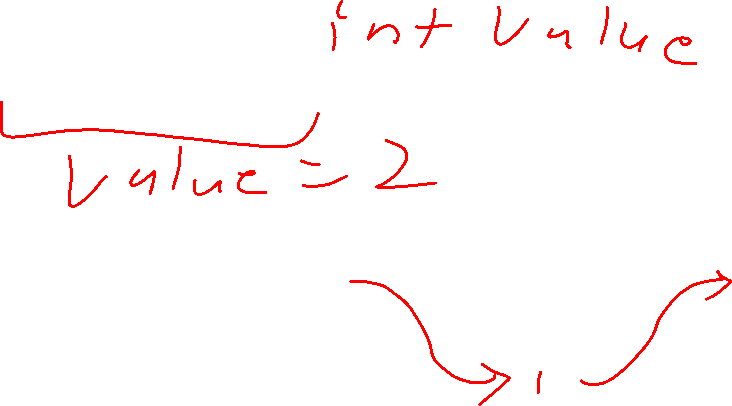 int value
value = 2
1